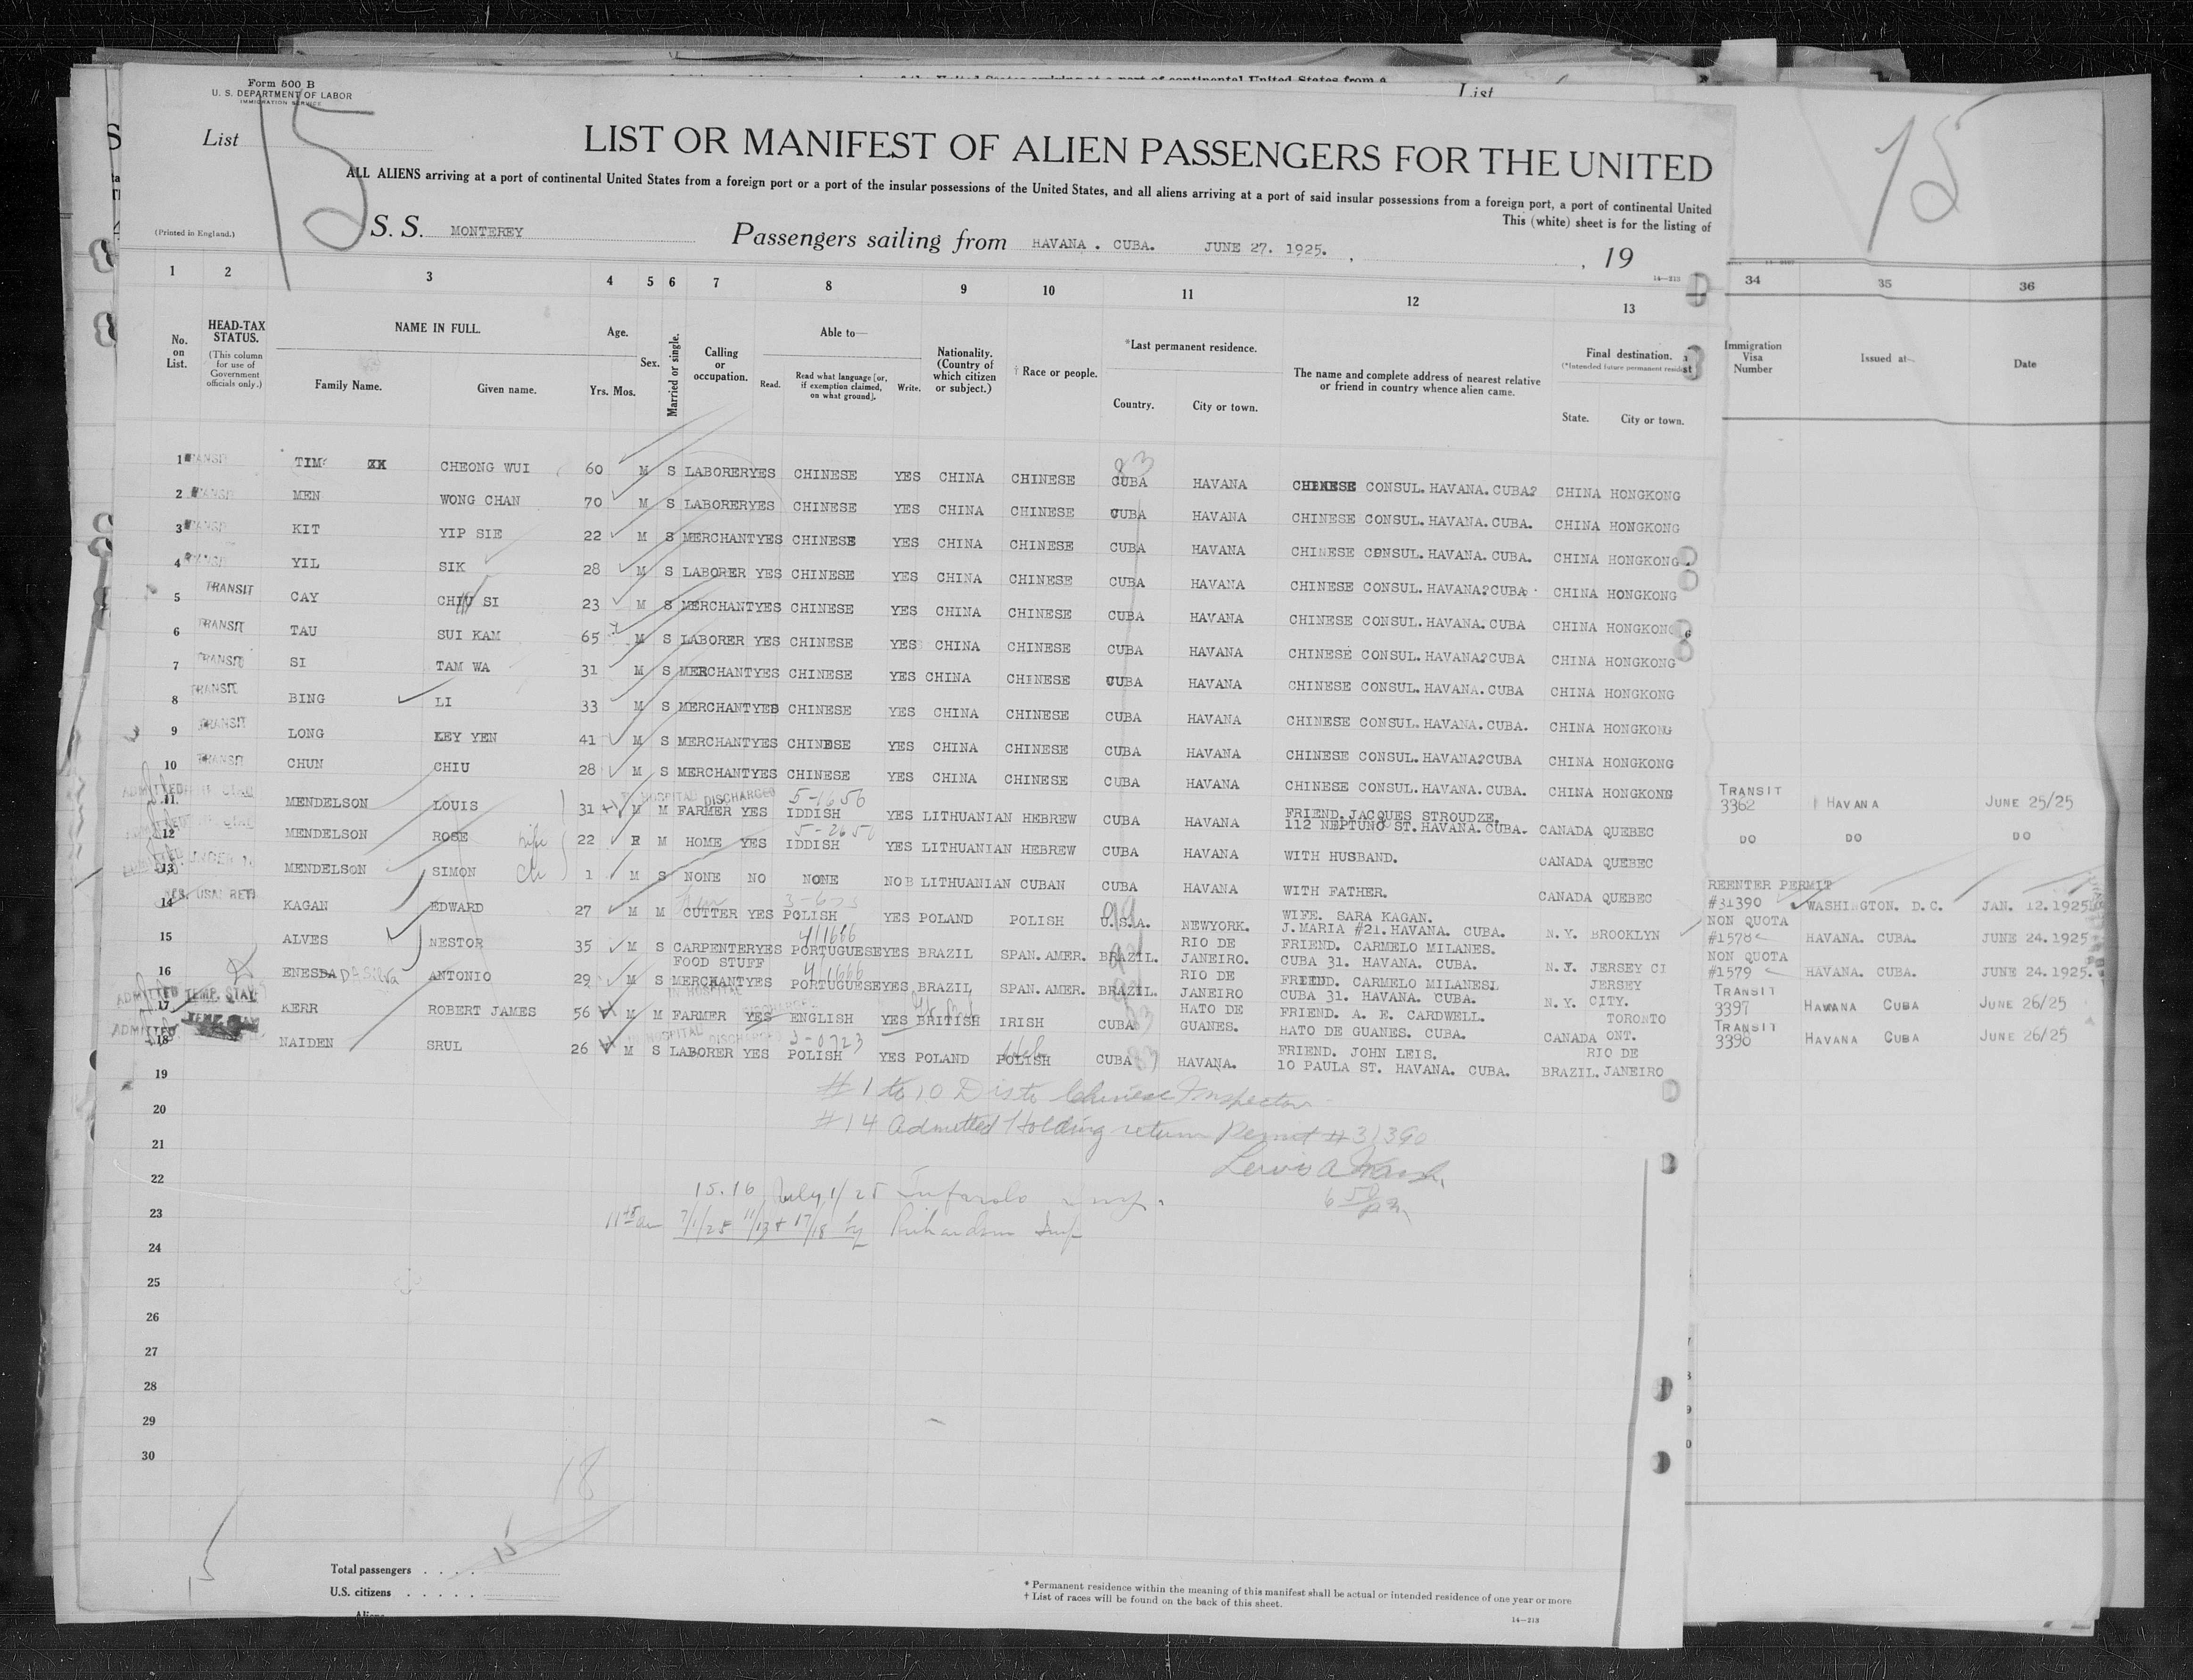 Form 500 B
U. S. DEPARTMENT OF LABOR
IMMIGRATION SERVICE
List 15
List
15
LIST OR MANIFEST OF ALIEN PASSENGERS FOR THE UNITED
ALL ALIENS arriving at a port of continental United States from a foreign port or a port of the insular possessions of the United States, and all aliens arriving at a port of said insular possessions from a foreign port, a port of continental United
This (white) sheet is for the listing of
(Printed in England.)
S. S. MONTEREY Passengers sailing from HAVANA . CUBA. JUNE 27. 1925. , , 19
14—213
1 2 3 4 5 6 7 8 9 10 11 12 13 34 35 36
No. on List.
HEAD-TAX STATUS.
(This column for use of Government officials only.)
NAME IN FULL.
Family Name. Given name.
Age.
Yrs. Mos.
Sex.
Married or single.
Calling or occupation.
Able to—
Read. Read what language [or, if exemption claimed, on what ground]. Write.
Nationality. (Country of which citizen or subject.)
† Race or people.
*Last permanent residence.
Country. City or town.
The name and complete address of nearest relative or friend in country whence alien came.
Final destination.
(*Intended future permanent resident
State. City or town.
Immigration Visa Number
Issued at—
Date
1 TRANSIT TIM CHEONG WUI 60 M S LABORER YES CHINESE YES CHINA CHINESE CUBA HAVANA CHINESE CONSUL. HAVANA. CUBA? CHINA HONGKONG
83
2 TRANSIT MEN WONG CHAN 70 M S LABORER YES CHINESE YES CHINA CHINESE CUBA HAVANA CHINESE CONSUL. HAVANA. CUBA. CHINA HONGKONG
3 TRANSIT KIT YIP SIE 22 M S MERCHANT YES CHINESE YES CHINA CHINESE CUBA HAVANA CHINESE CPNSUL. HAVANA. CUBA. CHINA HONGKONG.
4 TRANSIT YIL SIK 28 M S LABORER YES CHINESE YES CHINA CHINESE CUBA HAVANA CHINESE CONSUL. HAVANA?CUBA. CHINA HONGKONG
5 TRANSIT CAY CHIU SI 23 M S MERCHANT YES CHINESE YES CHINA CHINESE CUBA HAVANA CHINESE CONSUL. HAVANA. CUBA CHINA HONGKONG
6 TRANSIT TAU SUI KAM 65 M S LABORER YES CHINESE YES CHINA CHINESE CUBA HAVANA CHINESE CONSUL. HAVANA?CUBA CHINA HONGKONG
7 TRANSIT SI TAM WA 31 M S MERCHANT YES CHINESE YES CHINA CHINESE CUBA HAVANA CHINESE CONSUL. HAVANA. CUBA CHINA HONGKONG
8 TRANSIT BING LI 33 M S MERCHANT YES CHINESE YES CHINA CHINESE CUBA HAVANA CHINESE CONSUL. HAVANA. CUBA. CHINA HONGKONG
9 TRANSIT LONG LEY YEN 41 M S MERCHANT YES CHINESE YES CHINA CHINESE CUBA HAVANA CHINESE CONSUL. HAVANA?CUBA CHINA HONGKONG
10 TRANSIT CHUN CHIU 28 M S MERCHANT YES CHINESE YES CHINA CHINESE CUBA HAVANA CHINESE CONSUL. HAVANA. CUBA. CHINA HONGKONG
ADMITTED TEMP. STAY IN HOSPITAL DISCHARGED 5-1656
11 MENDELSON LOUIS 31 M M FARMER YES IDDISH YES LITHUANIAN HEBREW CUBA HAVANA FRIEND. JACQUES STROUDZE. 112 NEPTUNO ST. HAVANA. CUBA. CANADA QUEBEC TRANSIT 3362 HAVANA JUNE 25/25
12 MENDELSON ROSE wife 22 F M HOME YES IDDISH YES LITHUANIAN HEBREW CUBA HAVANA WITH HUSBAND. CANADA QUEBEC DO DO DO
13 UNDER 16 MENDELSON SIMON ch 1 M S NONE NO NONE NO LITHUANIAN CUBAN CUBA HAVANA WITH FATHER. CANADA QUEBEC
14 KAGAN EDWARD 27 M M CUTTER YES POLISH YES POLAND POLISH U.S.A. NEWYORK. WIFE. SARA KAGAN. J. MARIA #21. HAVANA. CUBA. N.Y. BROOKLYN REENTER PERMIT #31390 WASHINGTON. D.C. JAN. 12. 1925
15 ALVES NESTOR 35 M S CARPENTER YES PORTUGUESE YES BRAZIL SPAN. AMER. BRAZIL. RIO DE JANEIRO. FRIEND. CARMELO MILANES. CUBA 31. HAVANA. CUBA. N.J. JERSEY CI NON QUOTA #1578 HAVANA. CUBA. JUNE 24. 1925
411666
16 ENESDA DASILVA ANTONIO 29 M S FOOD STUFF MERCHANT YES PORTUGUESE YES BRAZIL SPAN. AMER. BRAZIL. RIO DE JANEIRO FRIEND. CARMELO MILANES. CUBA 31. HAVANA. CUBA. N.Y. JERSEY CITY. NON QUOTA #1579 HAVANA. CUBA. JUNE 24. 1925.
411666
17 ADMITTED TEMP. STAY KERR ROBERT JAMES 56 M M FARMER YES ENGLISH YES BRITISH IRISH CUBA HATO DE GUANES. FRIEND. A. E. CARDWELL. HATO DE GUANES. CUBA. CANADA TORONTO ONT. TRANSIT 3397 HAVANA CUBA JUNE 26/25
IN HOSPITAL DISCHARGED
18 ADMITTED TEMP. STAY NAIDEN SRUL 26 M S LABORER YES POLISH YES POLAND POLISH CUBA HAVANA. FRIEND. JOHN LEIS. 10 PAULA ST. HAVANA. CUBA. BRAZIL. RIO DE JANEIRO TRANSIT 3398 HAVANA CUBA JUNE 26/25
IN HOSPITAL DISCHARGED 3-0723
19
20
21
22
23
24
25
26
27
28
29
30
# 1 to 10 Dis to Chinese Inspector
# 14 Admitted Holding return Permit # 31390
15.16 July 1/25
7/1/25 11/13 + 17/18 by Richardson Insp
18
15
Total passengers . . . .
U.S. citizens . . . . .
Aliens
* Permanent residence within the meaning of this manifest shall be actual or intended residence of one year or more
† List of races will be found on the back of this sheet.
14—213